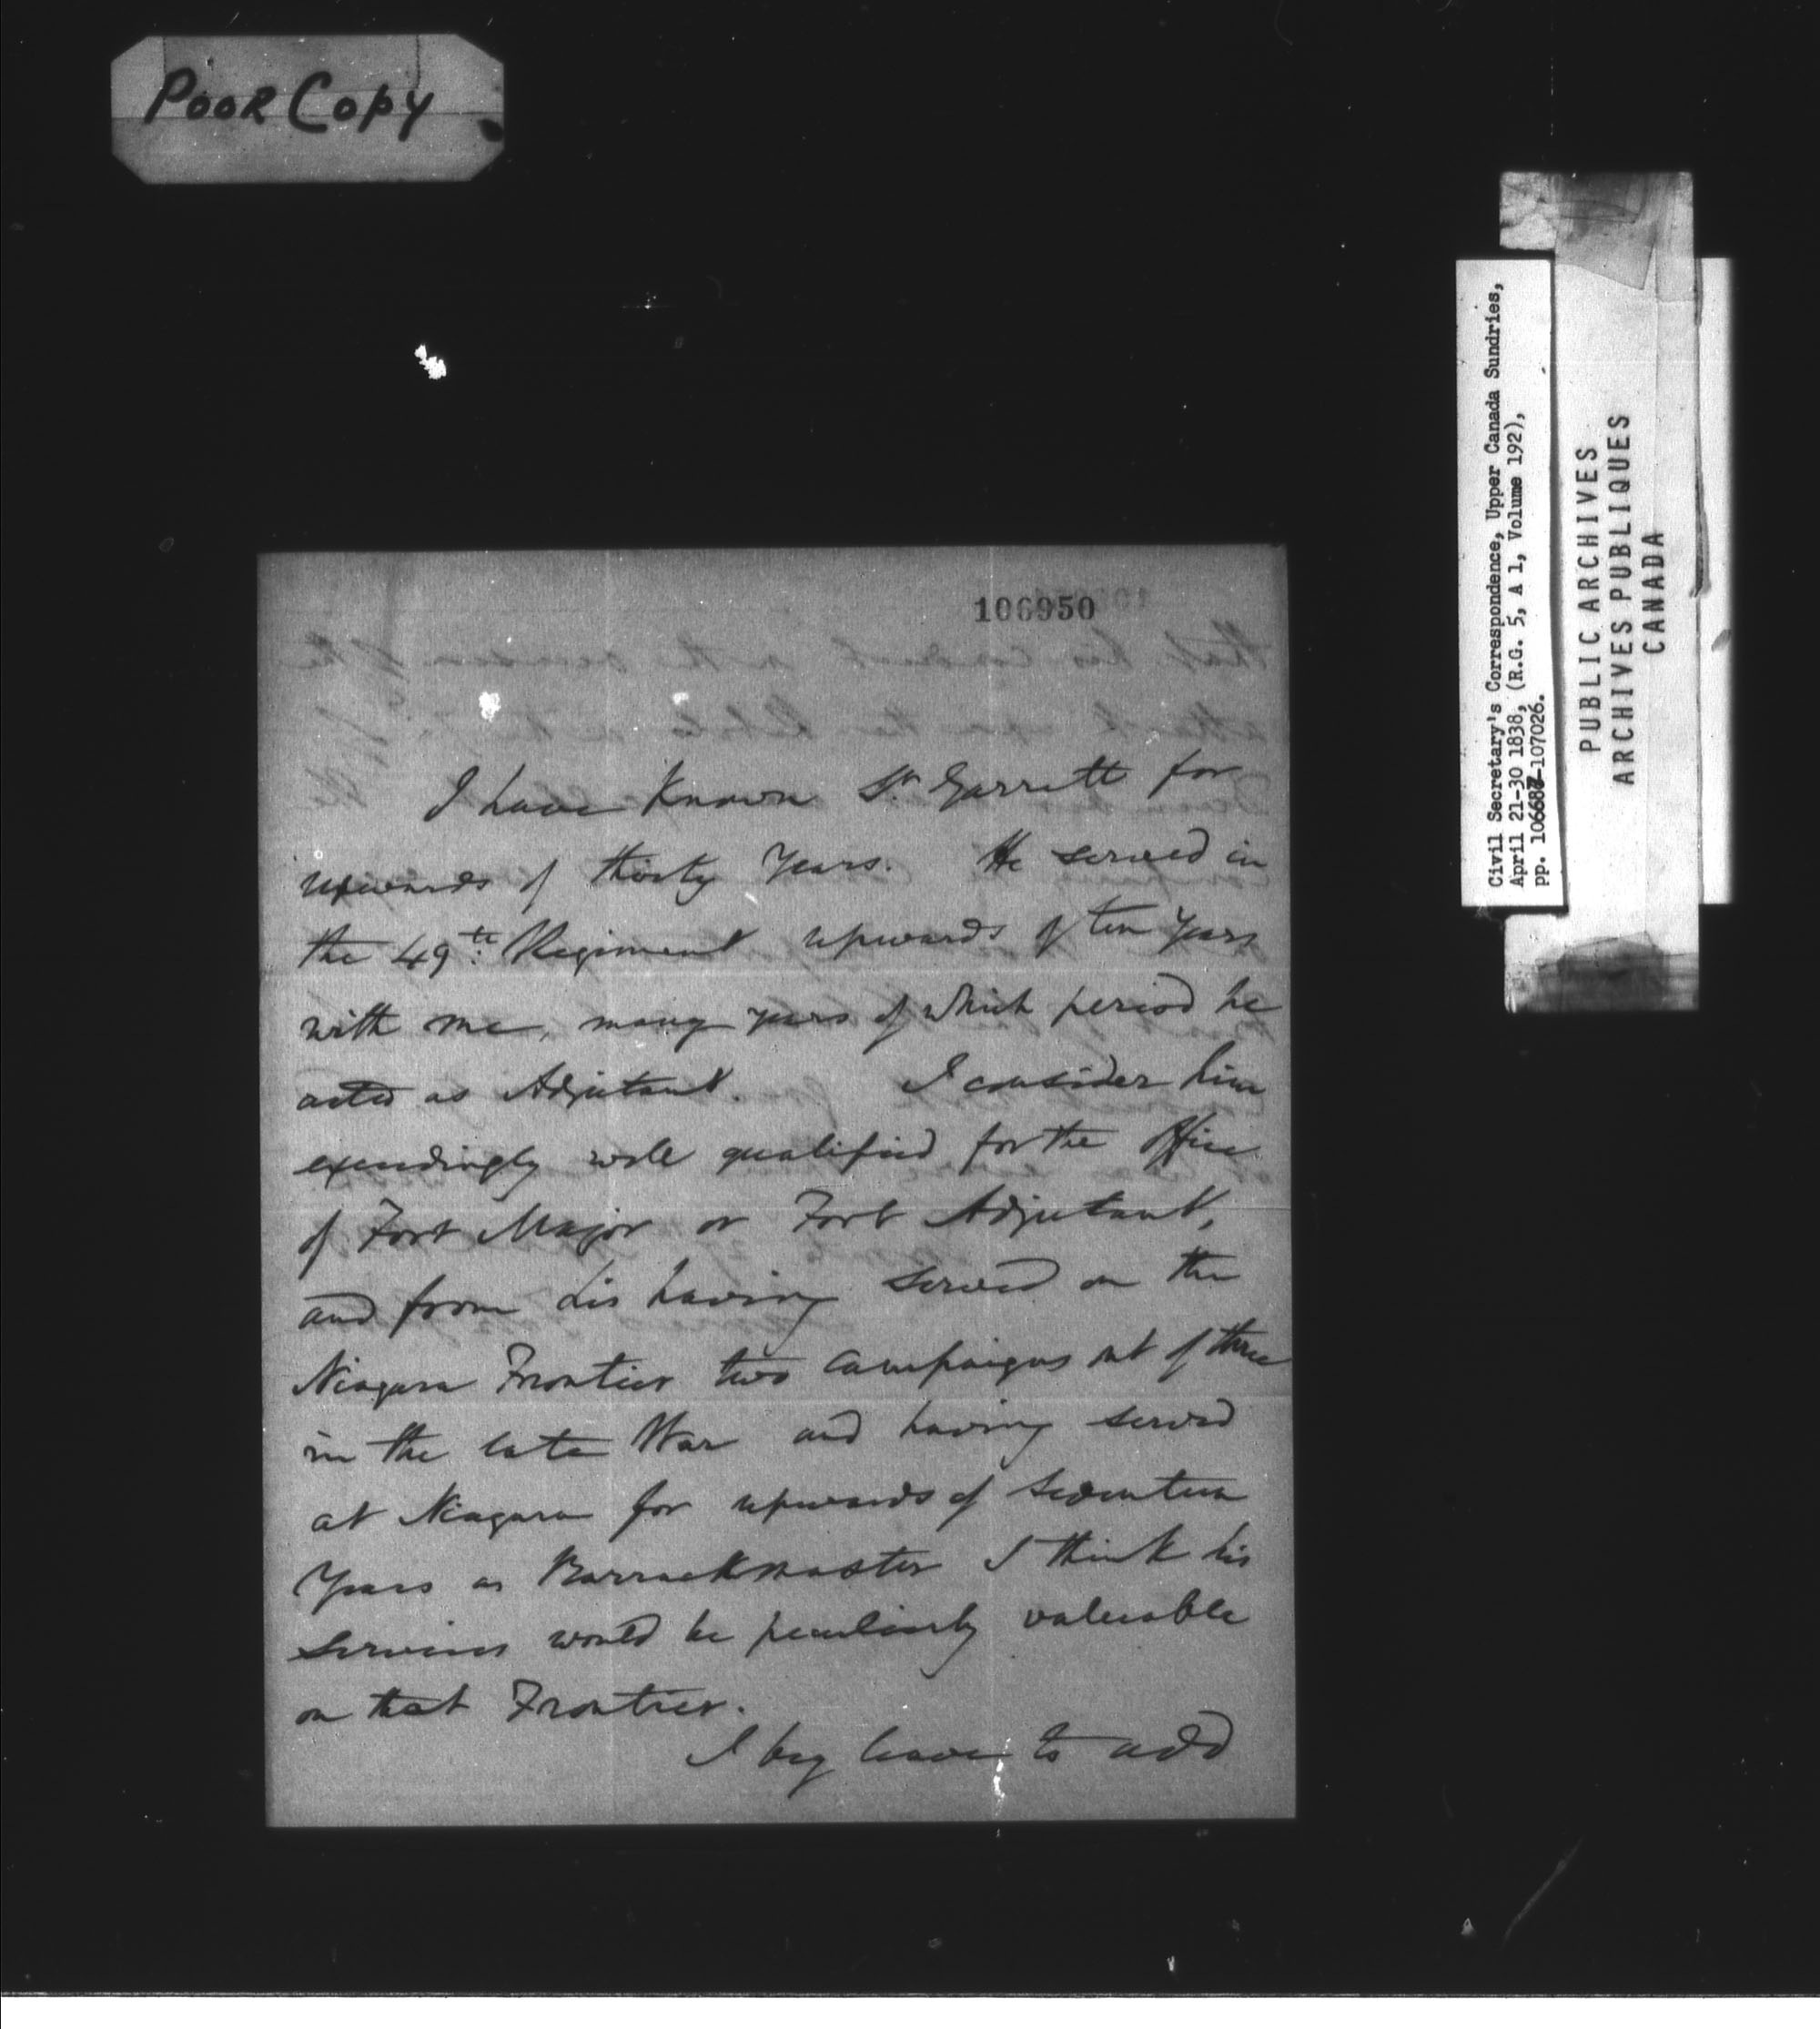 Poor Copy
Civil Secretary's Correspondence, Upper Canada Sundries,
April 21-30 1838, (R.G. 5, A 1, Volume 192),
pp. 106687-107026.
PUBLIC ARCHIVES
ARCHIVES PUBLIQUES
CANADA
106950
I have Known Garrett for
upwards of thirty Years. He served in
the 49th Regiment upwards of ten Years
with me, many years of which period he
acted as Adjutant. I consider him
exceedingly well qualified for the Office
of Fort Major or Fort Adjutant,
and from his having served on the
Niagara Frontier two Campaigns out of three
in the late War and having served
at Niagara for upwards of Seventeen
Years as Barrackmaster I think his
services would be peculiarly valuable
on that Frontier.
I beg leave to add